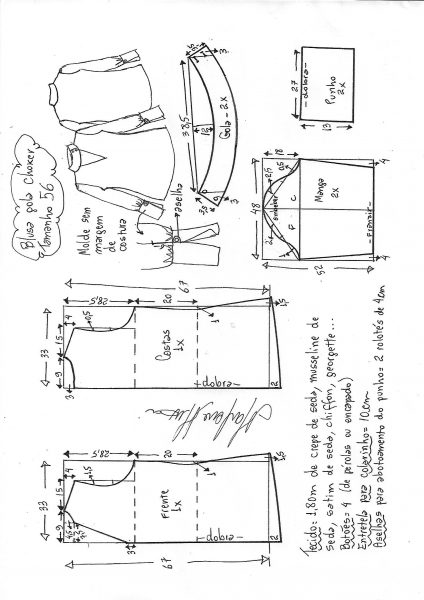 Blusa gola choker
Tamanho 56
Molde sem
margem
de
costura
aselha
Gola - 2x
38,5
3
3
3,5
Punho
2x
dobra
27
13
Manga
2x
franzir
48
52
18
4
4
C
F
67
33
9
15
4
28,5
0,5
20
1
1,5
2
Costas
1x
dobra
67
33
9
15
4
28,5
1,5
20
1
1,5
2
3
Frente
1x
dobra
Tecido: 1,80m de crepe de seda, musseline de
seda, satim de seda, chiffon, georgette...
Botões = 4 (de pérolas ou encapado)
Entretela para colarinho = 10cm
Aselhas para abotoamento do punho = 2 rolotês de 4cm